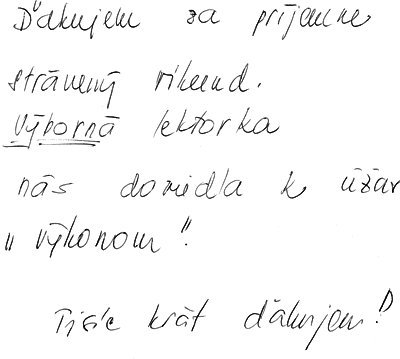 Ďakujem za príjemne
strávený víkend.
Výborná lektorka
nás doviedla k úžas.
„výkonom".
Tisíc krát ďakujem!